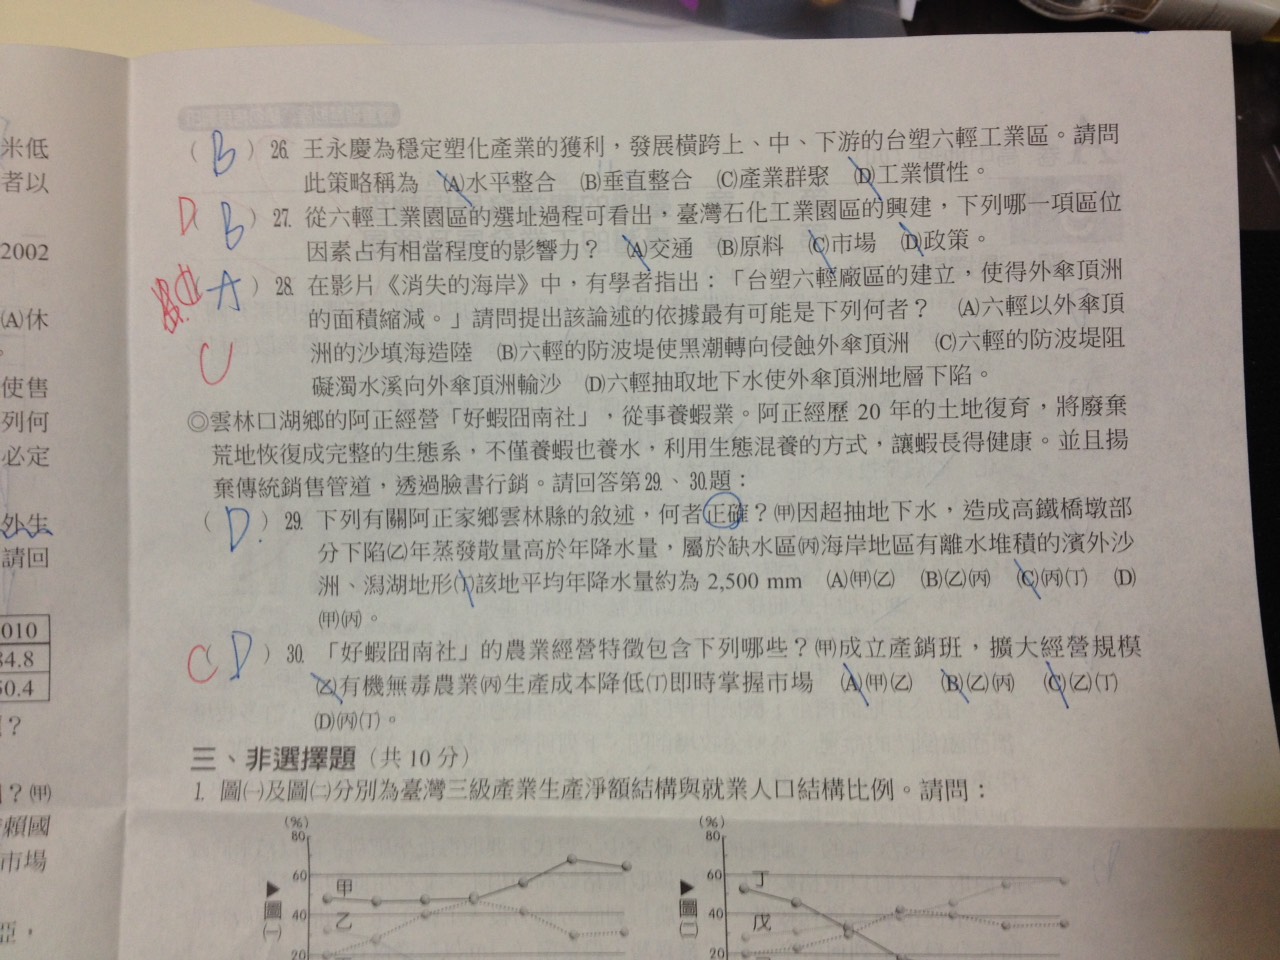 米低
者以
2002
(A)休
。
使售
列何
必定
外生
請回
010
84.8
50.4
?
?(甲)
賴國
市場
亞，
( B ) 26. 王永慶為穩定塑化產業的獲利，發展橫跨上、中、下游的台塑六輕工業區。請問
此策略稱為 (A)水平整合 (B)垂直整合 (C)產業群聚 (D)工業慣性。
D B ) 27. 從六輕工業園區的選址過程可看出，臺灣石化工業園區的興建，下列哪一項區位
因素占有相當程度的影響力？ (A)交通 (B)原料 (C)市場 (D)政策。
A ) 28. 在影片《消失的海岸》中，有學者指出：「台塑六輕廠區的建立，使得外傘頂洲
的面積縮減。」請問提出該論述的依據最有可能是下列何者？ (A)六輕以外傘頂
C 洲的沙填海造陸 (B)六輕的防波堤使黑潮轉向侵蝕外傘頂洲 (C)六輕的防波堤阻
礙濁水溪向外傘頂洲輸沙 (D)六輕抽取地下水使外傘頂洲地層下陷。
◎雲林口湖鄉的阿正經營「好蝦囧南社」，從事養蝦業。阿正經歷 20 年的土地復育，將廢棄
荒地恢復成完整的生態系，不僅養蝦也養水，利用生態混養的方式，讓蝦長得健康。並且揚
棄傳統銷售管道，透過臉書行銷。請回答第29.、30.題：
( D. ) 29. 下列有關阿正家鄉雲林縣的敘述，何者正確？(甲)因超抽地下水，造成高鐵橋墩部
分下陷(乙)年蒸發散量高於年降水量，屬於缺水區(丙)海岸地區有離水堆積的濱外沙
洲、潟湖地形(丁)該地平均年降水量約為 2,500 mm (A)(甲)(乙) (B)(乙)(丙) (C)(丙)(丁) (D)
(甲)(丙)。
C D ) 30. 「好蝦囧南社」的農業經營特徵包含下列哪些？(甲)成立產銷班，擴大經營規模
(乙)有機無毒農業(丙)生產成本降低(丁)即時掌握市場 (A)(甲)(乙) (B)(乙)(丙) (C)(乙)(丁)
(D)(丙)(丁)。
三、非選擇題（共 10 分）
1. 圖(一)及圖(二)分別為臺灣三級產業生產淨額結構與就業人口結構比例。請問：
(%)
80
60
40
20
甲
乙
▶圖(一)
(%)
80
60
40
20
丁
戊
▶圖(二)